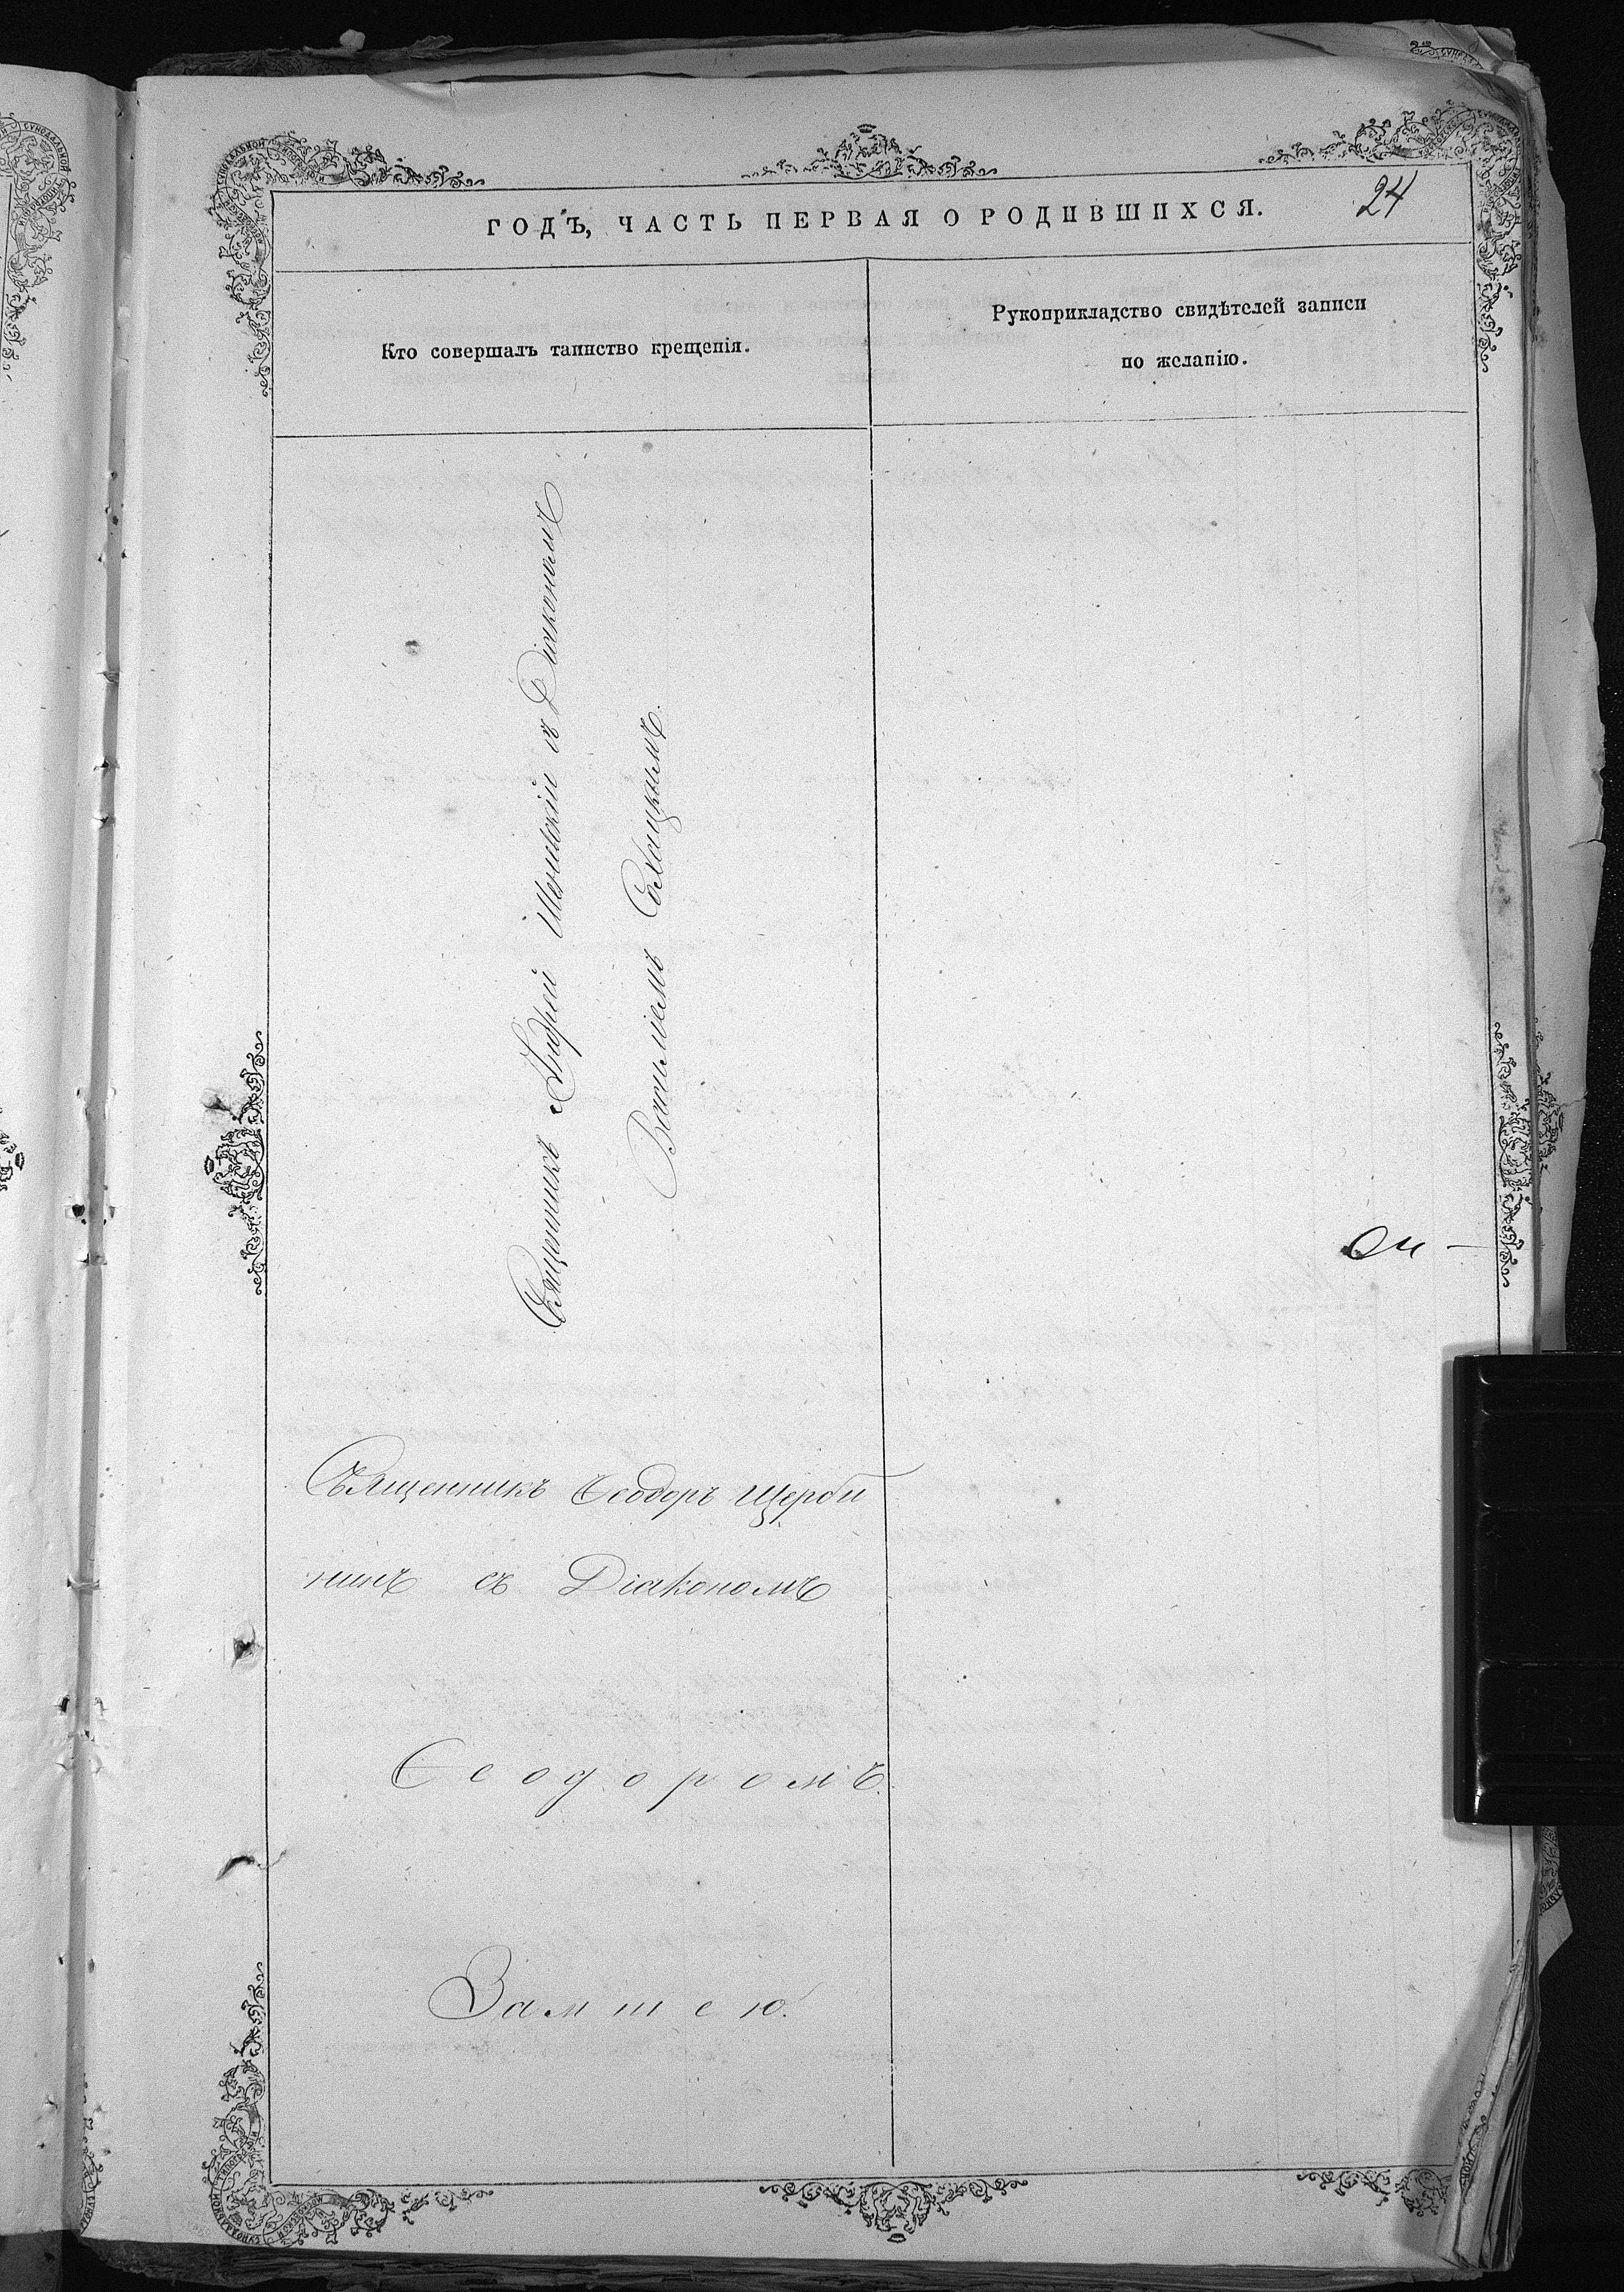 24
ГОДЪ, ЧАСТЬ ПЕРВАЯ О РОДИВШИХСЯ.
Кто совершалъ таинство крещенія.
Рукоприкладство свидѣтелей записи
по желанію.
Священникъ Андрей с Діакономъ
Василіемъ
Священникъ Ѳеодоръ Щерби
нинъ съ Діакономъ
Ѳеодоромъ
Замшею.